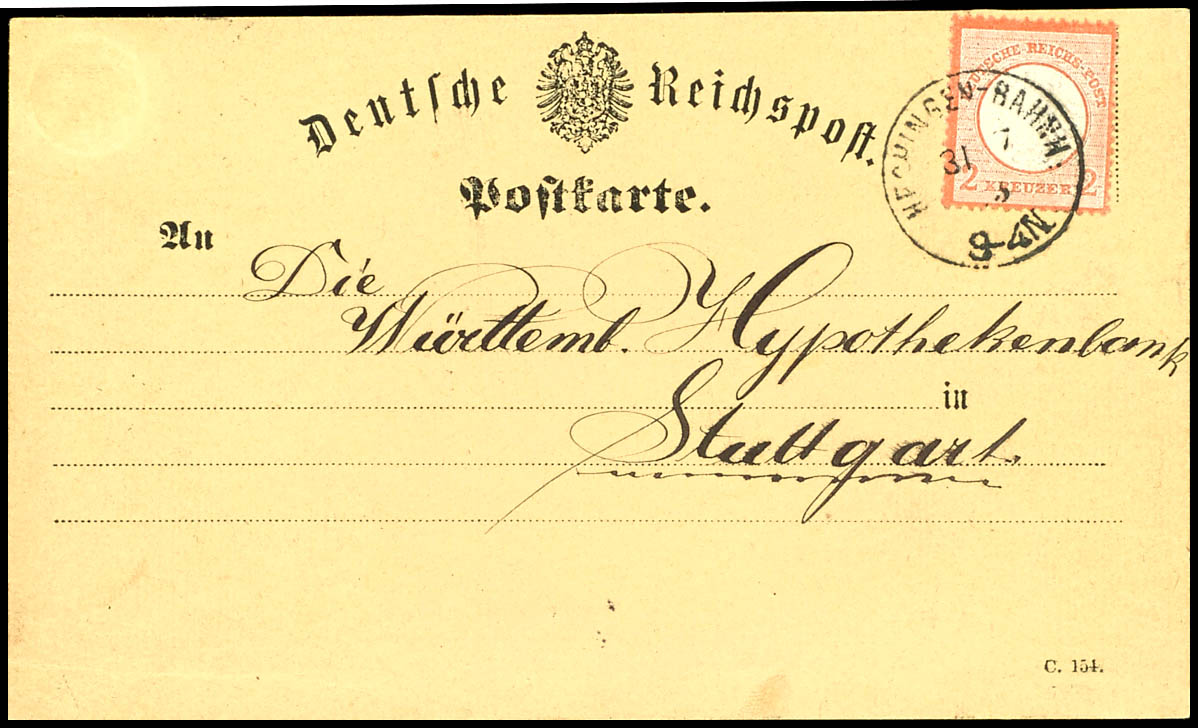 Deutsche Reichspost.
Postkarte.
DEUTSCHE REICHS-POST
2 KREUZER 2
HECHINGEN-BAHNH.
31
An
Die
Württemb. Hypothekenbank
in
Stuttgart.
C. 154.